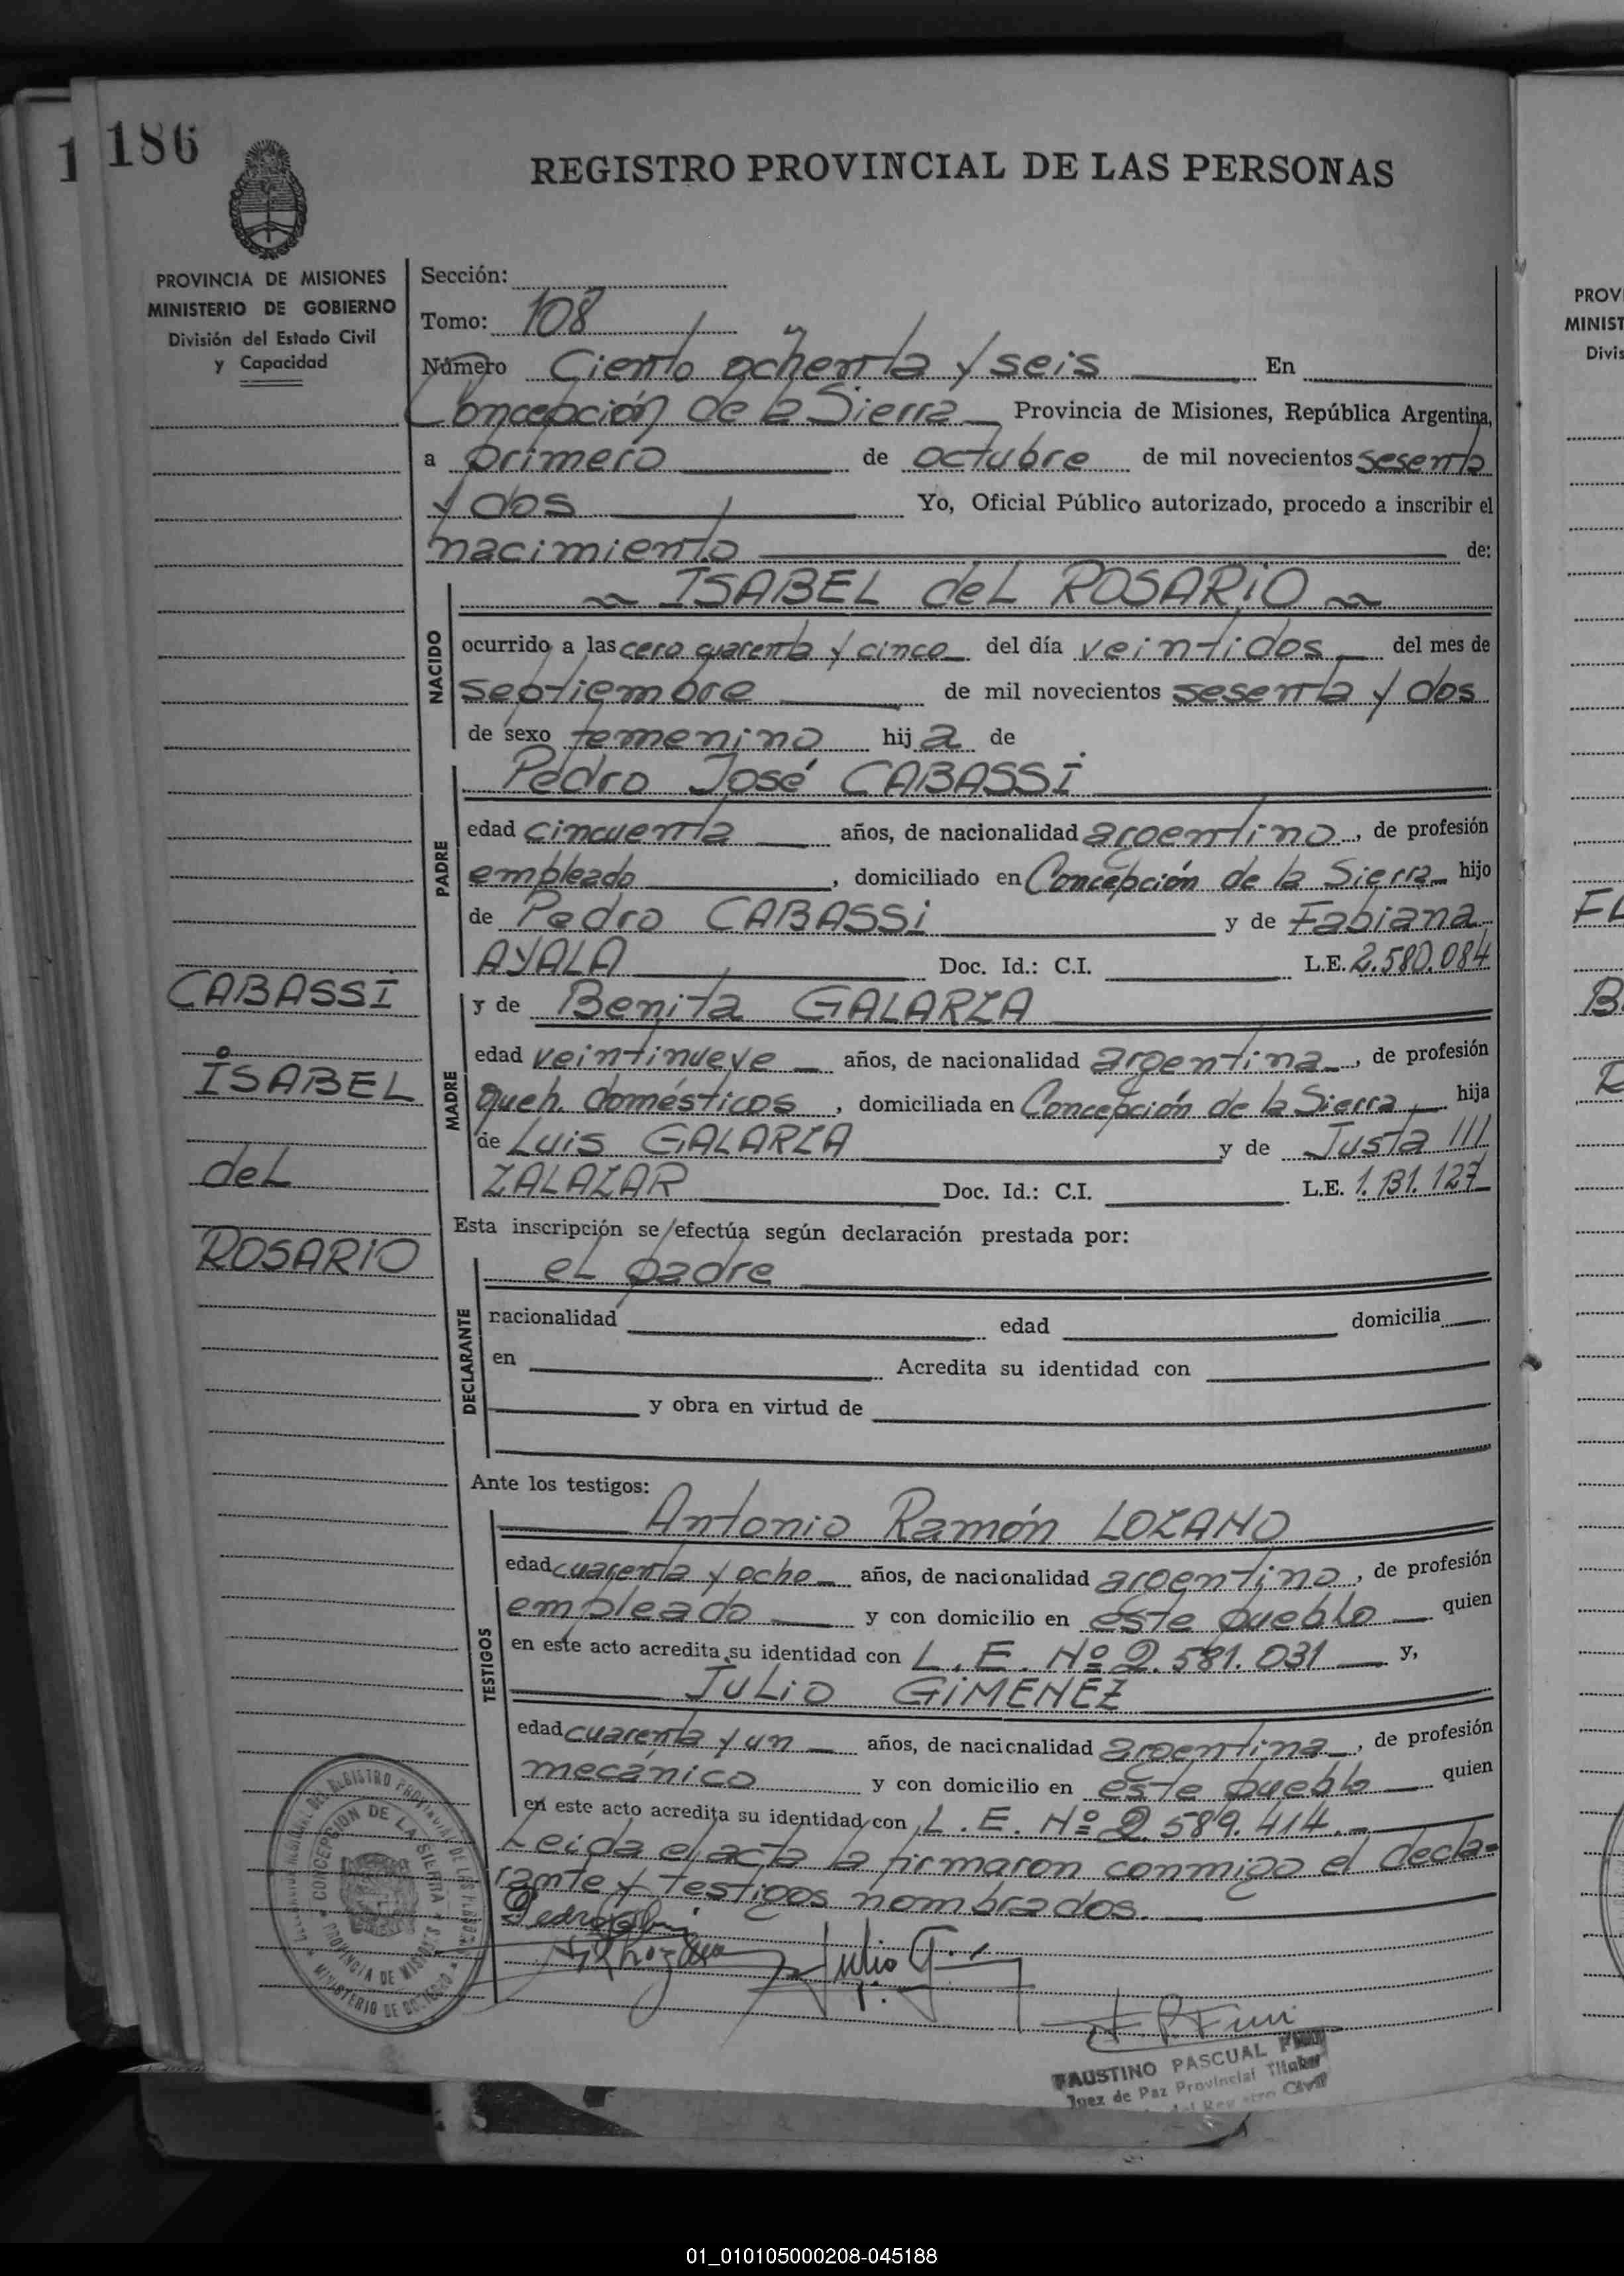 1 186
REGISTRO PROVINCIAL DE LAS PERSONAS
PROVINCIA DE MISIONES
MINISTERIO DE GOBIERNO
División del Estado Civil
y Capacidad
Sección:
Tomo: 108
Número Ciento ochenta y seis En
Concepción de la Sierra Provincia de Misiones, República Argentina,
a primero de octubre de mil novecientos sesenta
y dos Yo, Oficial Público autorizado, procedo a inscribir el
nacimiento de:
NACIDO
ISABEL del ROSARIO
ocurrido a las cero cuarenta y cinco del día veintidos del mes de
septiembre de mil novecientos sesenta y dos
de sexo femenino hija de
PADRE
Pedro José CABASSI
edad cincuenta años, de nacionalidad argentino, de profesión
empleado, domiciliado en Concepción de la Sierra hijo
de Pedro CABASSI y de Fabiana
AYALA Doc. Id.: C.I. L.E. 2.580.084
MADRE
y de Benita GALARZA
edad veintinueve años, de nacionalidad argentina, de profesión
queh. domésticos, domiciliada en Concepción de la Sierra hija
de Luis GALARZA y de Justa ///
ZALAZAR Doc. Id.: C.I. L.E. 1.131.127
CABASSI
ISABEL
del
ROSARIO
Esta inscripción se efectúa según declaración prestada por:
DECLARANTE
el padre
nacionalidad edad domicilia
en Acredita su identidad con
y obra en virtud de
Ante los testigos:
TESTIGOS
Antonio Ramón LOZANO
edad cuarenta y ocho años, de nacionalidad argentino, de profesión
empleado y con domicilio en este pueblo quien
en este acto acredita su identidad con L.E. Nº 2.581.031 y,
Julio GIMENEZ
edad cuarenta y un años, de nacionalidad argentina, de profesión
mecánico y con domicilio en este pueblo quien
en este acto acredita su identidad con L.E. Nº 2.589.414.
Leida el acta la firmaron conmigo el decla-
rante y testigos nombrados.
Julio
CONCEPCION DE LA SIERRA
PROVINCIA DE MISIONES
MINISTERIO DE GOBIERNO
FAUSTINO PASCUAL
Juez de Paz Provincial Titular
Civil
PROVI
MINIST
Divis
01_010105000208-045188